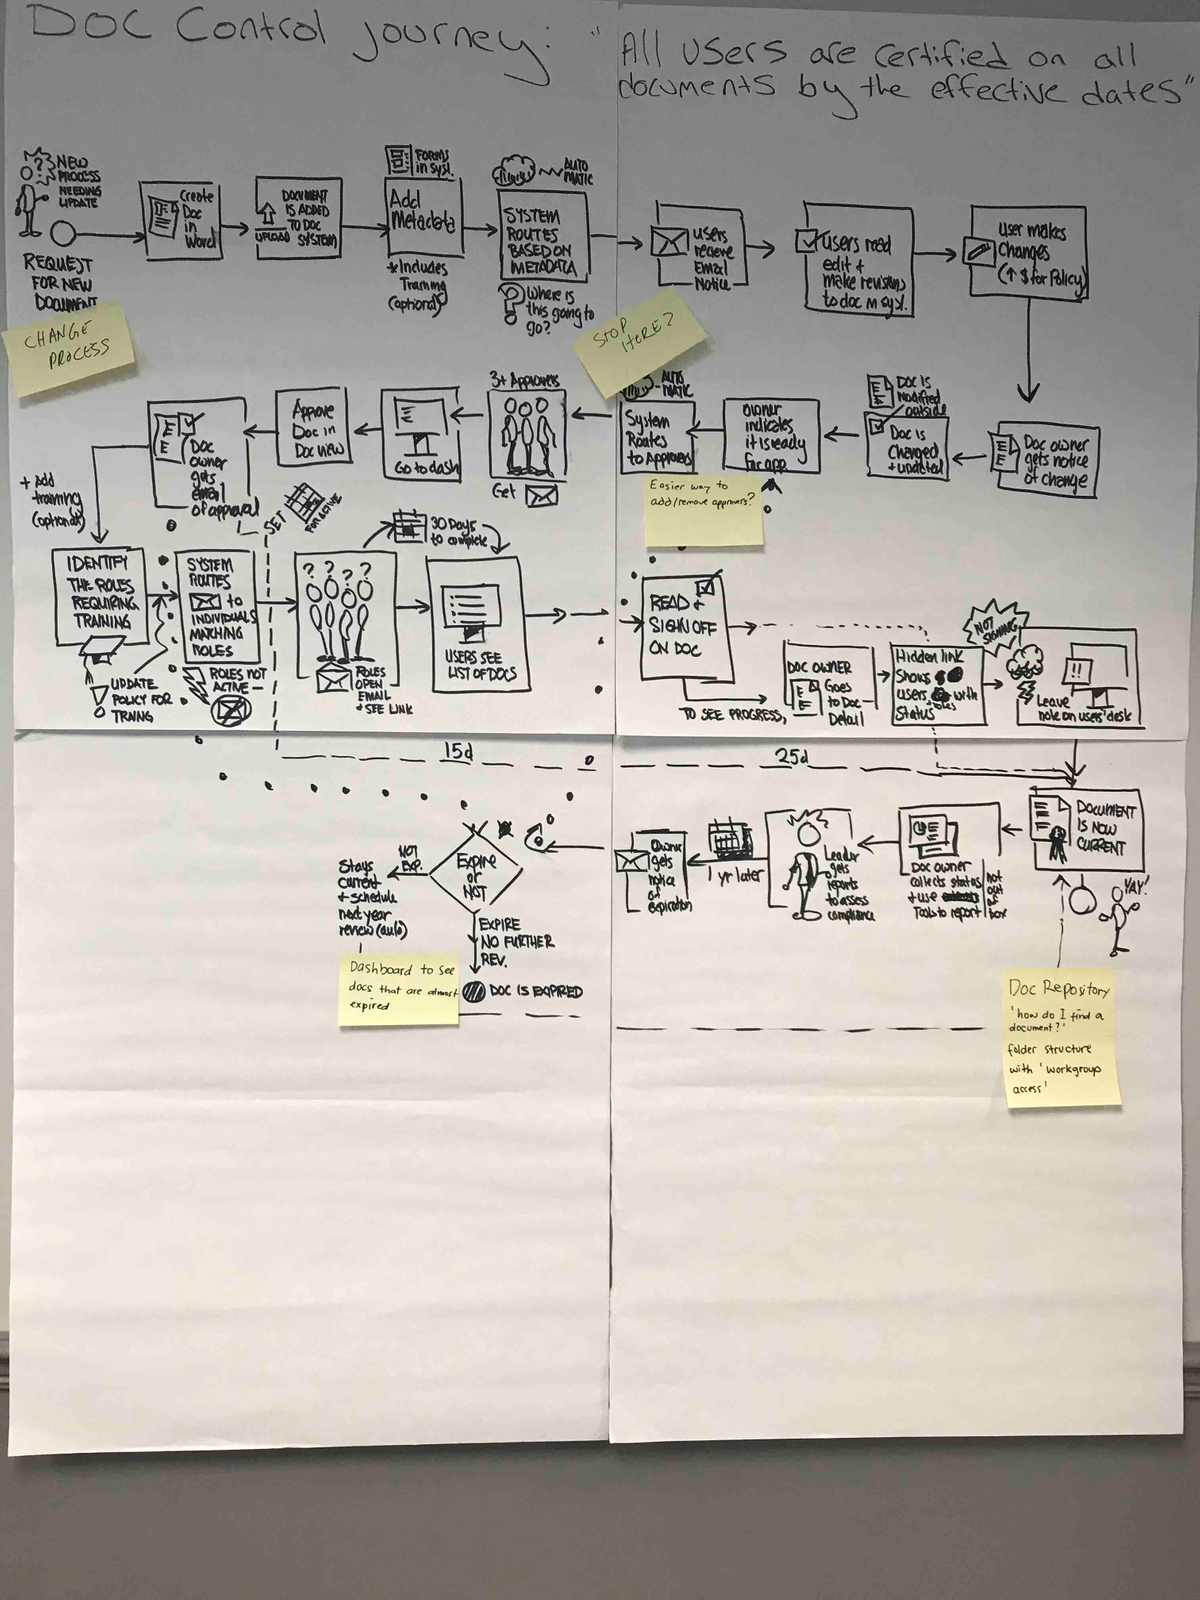 DOC Control Journey: "All users are certified on all
documents by the effective dates"
NEW
PROCESS
NEEDING
UPDATE
REQUEST
FOR NEW
DOCUMENT
CHANGE
PROCESS
Create
Doc
in
Word
DOCUMENT
IS ADDED
TO DOC
SYSTEM
UPLOAD
FORMS
in syst.
Add
Metadata
*Includes
Training
(optional)
AUTO
MATIC
SYSTEM
ROUTES
BASED ON
METADATA
? Where is
this going to
go?
users
recieve
Email
Notice
Users read
edit +
make revisions
to doc in sys.
user makes
changes
(↑ $ for Policy)
STOP
HERE?
Doc owner
gets notice
of change
Doc is
Modified
outside
Doc is
Changed
+ updated
owner
indicates
it is ready
for app.
AUTO
MATIC
System
Routes
to Approvers
Easier way to
add/remove approvers?
3+ Approvers
Get
Go to dash
Approve
Doc in
Doc new
Doc
owner
gets
email
of approval
+ Add
training
(optional)
SET
for active
IDENTIFY
THE ROLES
REQUIRING
TRAINING
UPDATE
POLICY FOR
TRAINING
SYSTEM
ROUTES
to
INDIVIDUALS
MATCHING
ROLES
ROLES NOT
ACTIVE —
? ? ? ?
ROLES
OPEN
EMAIL
+ SEE LINK
30 Days
to complete
USERS SEE
LIST OF DOCS
READ +
SIGN OFF
ON DOC
TO SEE PROGRESS,
DOC OWNER
Goes
to Doc
Detail
Hidden link
Shows
users with
Status
roles
NOT
SIGNING
!!
Leave
note on users' desk
15d
25d
DOCUMENT
IS NOW
CURRENT
YAY!
Doc owner
collects status
+ use
Tools to report
not
out
of
box
Leader
gets
reports
to assess
compliance
1 yr later
Owner
gets
notice
of
expiration
Expire
or
NOT
NOT
EXP.
Stays
current
+ schedule
next year
review (auto)
EXPIRE
NO FURTHER
REV.
DOC IS EXPIRED
Dashboard to see
docs that are almost
expired
Doc Repository
'how do I find a
document?'
folder structure
with 'workgroup
access'